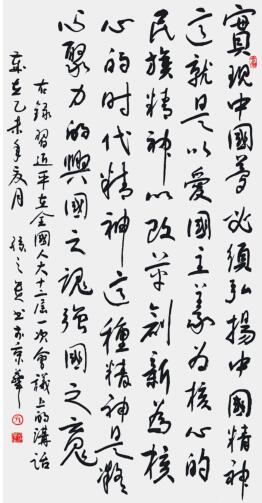 實現中國夢必須弘揚中國精神
這就是以愛國主義為核心的
民族精神以改革創新為核
心的时代精神這種精神是凝
心聚力的興國之魂強國之魂
右錄習近平在全國人大十二届一次會議上的講話
歲在乙未年夏月 书於京華